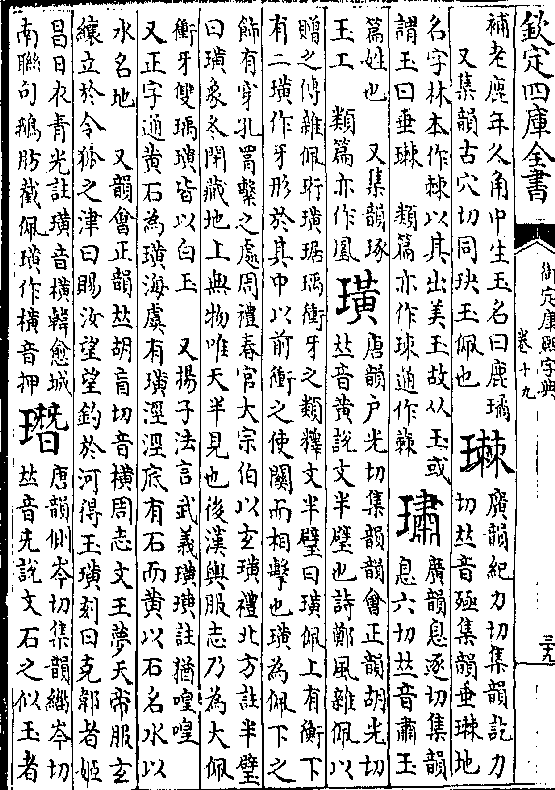 欽定四庫全書
御定康熙字典
卷十九
三九
補老鹿年久角中生玉名曰鹿璚
又集韻古穴切同玦玉佩也
廣韻紀力切集韻訖力
切𠀤音殛集韻垂地
名字林本作棘以其出美玉故从玉或
謂玉曰垂 類篇亦作通作棘
璛
廣韻息逐切集韻
息六切𠀤音肅玉
篇姓也 又集韻琢
玉工 類篇亦作
璜
唐韻戶光切集韻韻會正韻胡光切
𠀤音黃說文半璧也詩鄭風雜佩以
贈之傳雜佩珩璜琚瑀衝牙之類釋文半璧曰璜佩上有衡下
有二璜作牙形於其中以前衝之使關而相擊也璜為佩下之
飾有穿孔罥繫之處周禮春官大宗伯以玄璜禮北方註半璧
曰璜象冬閉藏地上無物唯天半見也後漢輿服志乃為大佩
衝牙雙瑀璜皆以白玉 又揚子法言武義璜璜註猶喤喤
又正字通黃石為璜海虞有璜涇涇底有石而黃以石名水以
水名地 又韻會正韻𠀤胡盲切音橫周志文王夢天帝服玄
纕立於令狐之津曰賜汝望望釣於河得玉璜刻曰克郭者姬
昌日衣青光註璜音橫韓愈城
南聯句鵝肪截佩璜作橫音押
璔
唐韻側岑切集韻緇岑切
𠀤音先說文石之似玉者